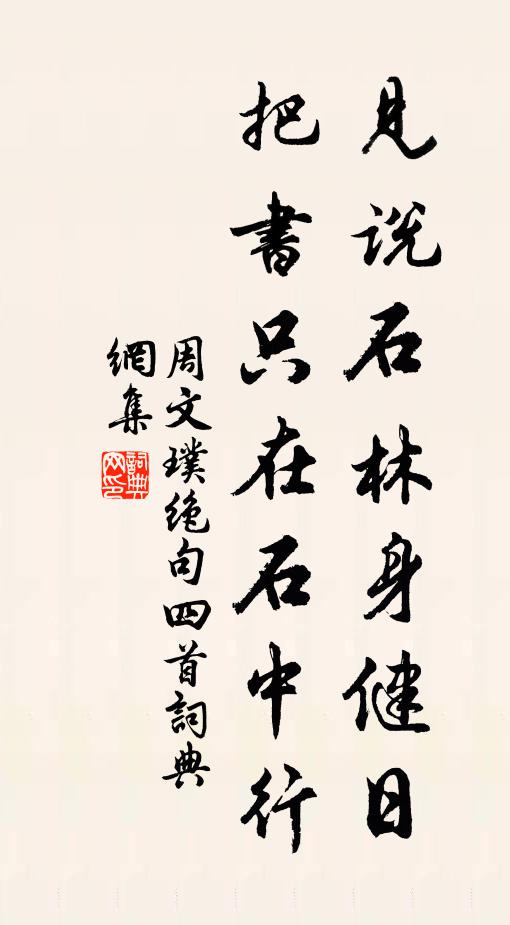 見說石林身健日
把書只在石中行
周文璞絶句四首詞典
網集
詞典網印